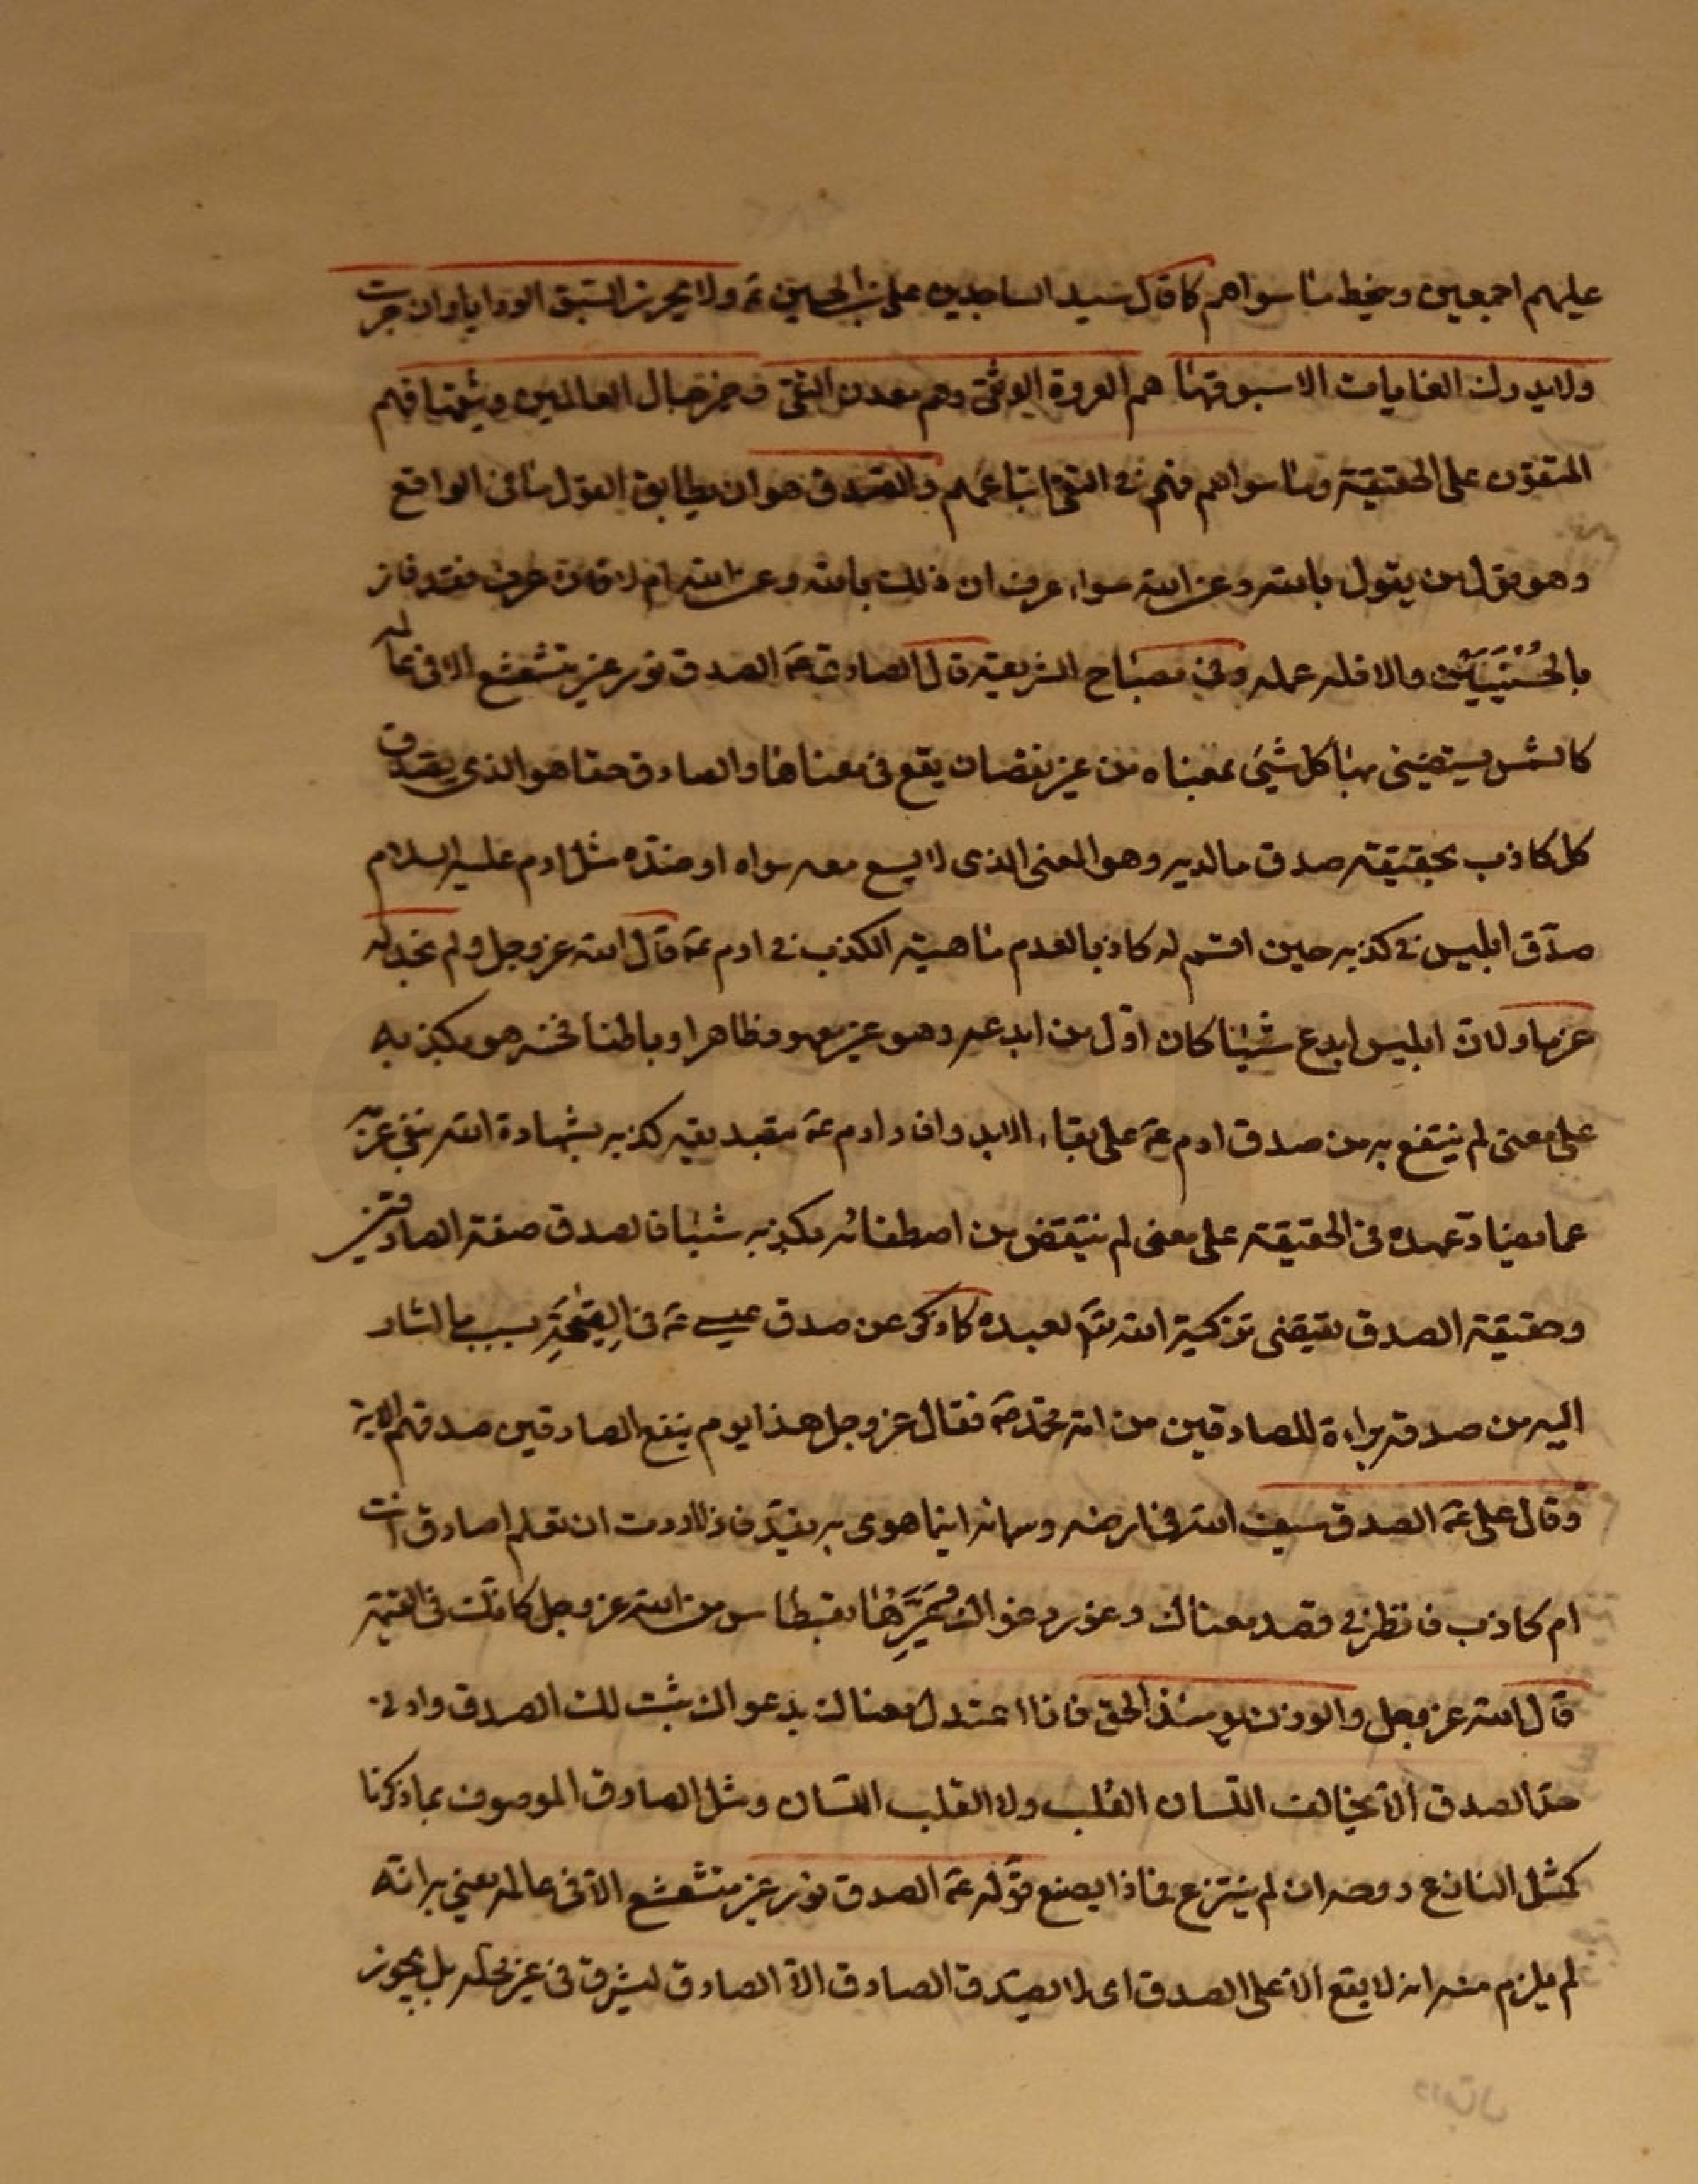 عليهم اجمعين وينحط ما سواهم كما قال سيد الساجدين علي بن الحسين عم ولا يحرز السبق الروايا وان جرت
ولا يدرك الغايات الا سبوقها هم العروة الوثقى وهم معدن التقى وخير حبال العالمين وثيقها فهم
المتقون على الحقيقة وما سواهم فهم في التقى اتباعهم والصدق هو ان يطابق القول ما في الواقع
وهو قول من يقول بالله وعن الله سواء عرف ان ذلك بالله وعن الله ام لا فان عرف فقد فاز
بالحسنيين والا فله عمله وفي مصباح الشريعة قال الصادق عم الصدق نور غير متشعشع الا في عالمه
كالشمس يستضيئ بها كل شيئ بمعناه من غير نقصان يقع في معناها والصادق حقا هو الذي يصدق
كل كاذب بحقيقة صدق ما لديه وهو المعنى الذي لا يسع معه سواه او ضده مثل ادم عليه السلام
صدّق ابليس في كذبه حين اقسم له كاذبا لعدم ماهية الكذب في ادم عم قال الله عز وجل ولم نجد له
عزما ولان ابليس ابدع شيئا كان اول من ابدعه وهو غير معهود ظاهرا وباطنا فخسر هو بكذبه
على معنى لم ينتفع به من صدق ادم عم على بقاء الابد وافاد ادم عم بتصديقه كذبه بشهادة الله بنفي عزمه
عما يضاد عهده في الحقيقة على معنى لم ينتقض من اصطفائه بكذبه شيئا فالصدق صفة الصادقين
وحقيقة الصدق يقتضي تزكية الله تعم لعبده كما ذكر عن صدق عيسى عم في القيمة بسبب ما اشار
اليه من صدقه براءة للصادقين من امة محمد صم فقال عز وجل هذا يوم ينفع الصادقين صدقهم الاية
وقال علي عم الصدق سيف الله في ارضه وسمائه اينما هوى به يقدّ فاذا اردت ان تعلم اصادق انت
ام كاذب فانظر في قصد معناك وغور دعواك وعيّرها بقسطاس من الله عز وجل كانك في القيمة
قال الله عز وجل والوزن يومئذ الحق فاذا اعتدل معناك بدعواك ثبت لك الصدق وادنى
حد الصدق الا يخالف اللسان القلب ولا القلب اللسان ومثل الصادق الموصوف بما ذكرنا
كمثل النازع روحه ان لم ينتزع فماذا يصنع قوله عم الصدق نور غير متشعشع الا في عالمه يعني به انه
لم يلزم منه انه لا يقع الا على الصدق اى لا يصدق الصادق الا الصادق ليشرق في غير محله بل يجوز